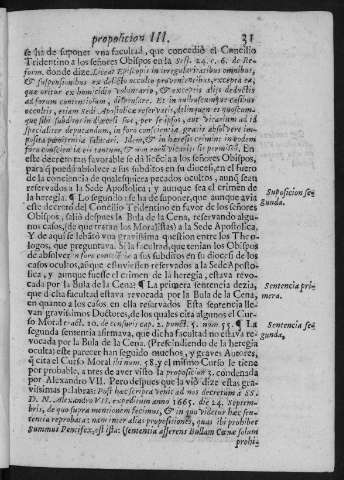 proposicion III. 31
se ha de suponer vna facultad, que concediò el Concilio
Tridentino a los señores Obispos en la Sess. 24. c. 6. de Re-
form. donde dize: Liceat Episcopis in irregularitatibus omnibus,
& suspensionibus ex delicto occulto provenientibus, excepta ea,
quæ oritur ex homicidio voluntario, & exceptis alijs deductis
ad forum contentiosum, dispensare. Et in quibuscumque casibus
occultis, etiam Sedi Apostolicæ reservatis, delinquentes quoscum-
que sibi subditos in diœcesi sua, per se ipsos, aut vicarium ad id
specialiter deputandum, in foro conscientiæ gratis absolvere, im-
posita pœnitentia salutari. Idem, & in hæresis crimine in eodem
foro conscientiæ eis tantum, & non eorum vicarijs sit permissum. En
este decreto tan favorable se dà licẽcia a los señores Obispos,
para q̃ puedã absolver a sus subditos en su diocesi, en el fuero
de la conciencia de qualesquiera pecados ocultos, aunq̃ sean
reservados a la Sede Apostolica; y aunque sea el crimen de
la heregia. ¶ Lo segundo: se ha de suponer, que aunque avia
este decreto del Concilio Tridentino en favor de los señores
Obispos, saliò despues la Bula de la Cena, reservando algu-
nos casos, (de que tratan los Moralistas) a la Sede Apostolica.
Y de aqui se lebãtò vna gravissima question entre los Theo-
logos, que preguntava. Si la facultad, que tenian los Obispos
de absolver in foro conscientiæ a sus subditos en su diocesi de los
casos ocultos, aũque estuviessen reservados a la Sede Aposto-
lica, y aunque fuesse el crimen de la heregia, estava revo-
cada por la Bula de la Cena? ¶ La primera sentencia dezia,
que dicha facultad estava revocada por la Bula de la Cena,
en quanto a los casos en ella reservados Esta sentencia lle-
van gravissimos Doctores, de los quales cita algunos el Cur-
so Moral tract. 10. de censuris cap. 2. punct. 5. num. 55. ¶ La
segunda sentencia afirmava, que dicha facultad no estava re-
vocada por la Bula de la Cena. (Prescindiendo de la heregia
oculta) este parecer han seguido muchos, y graves Autores,
q̃ cita el Curso Moral ibi num. 58. y el mismo Curso le tiene
por probable, a tres de aver visto la proposicion 3. condenada
por Alexandro VII. Pero despues que la viò dize estas gra-
vissimas palabras: Post hæc scripta venit ad nos decretum à SS.
D. N. Alexandro VII. expeditum anno 1665. die 24. Septem-
bris, de quo supra mentionem fecimus, & in quo videtur hæc sen-
tentia reprobata; nam inter alias propositiones, quas ibi prohibet
Summus Pontifex, est ista: (sententia asserens Bullam Cœnæ solum
prohi-
Suposicion se-
gunda.
Sentencia pri-
mera.
Sentencia se-
gunda.